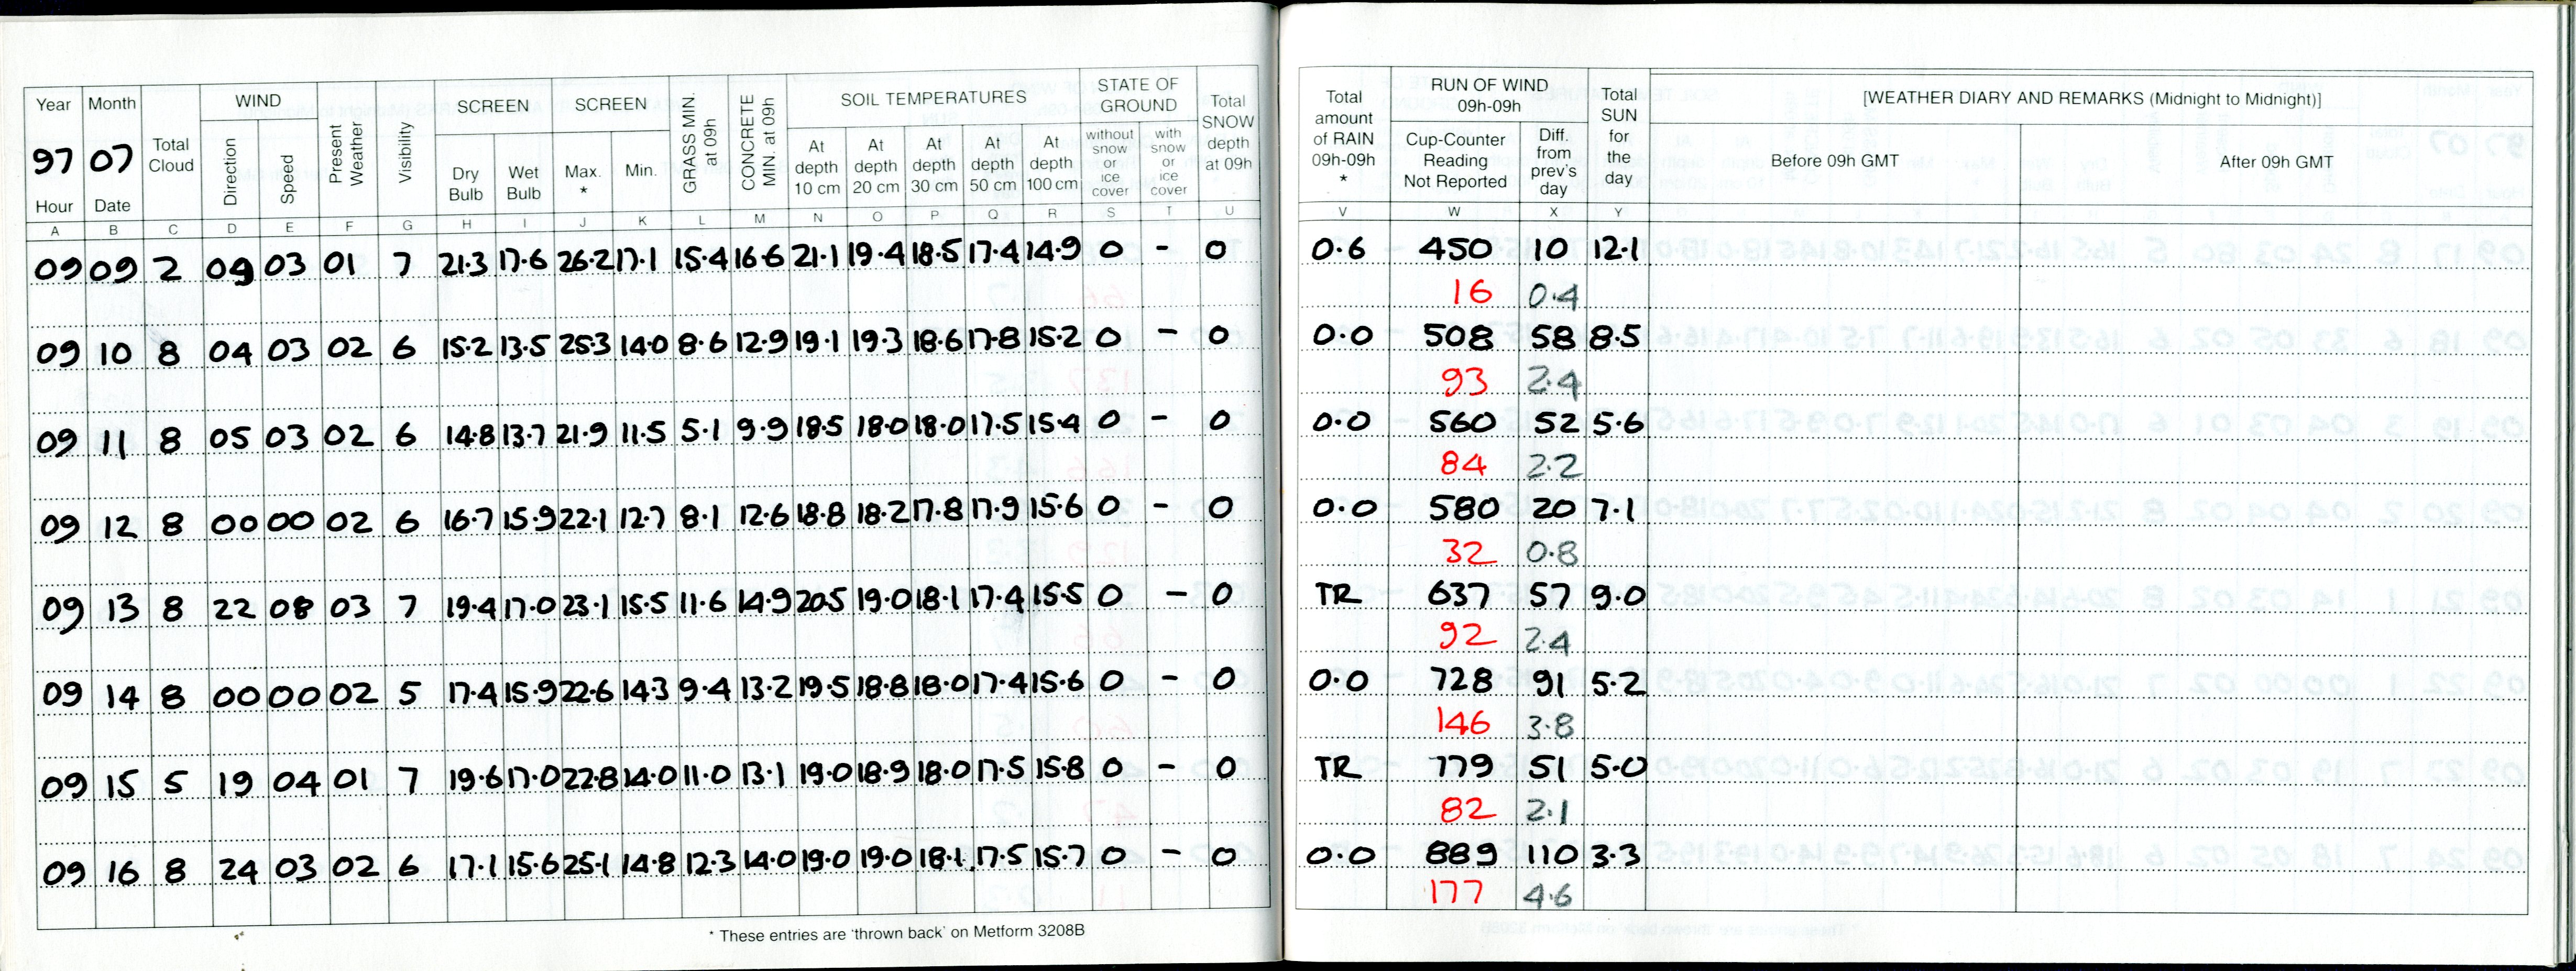 Year Month Total Cloud WIND Present Weather Visibility SCREEN SCREEN GRASS MIN. at 09h CONCRETE MIN. at 09h SOIL TEMPERATURES STATE OF GROUND Total SNOW depth at 09h
97 07 Direction Speed Dry Bulb Wet Bulb Max. * Min. At depth 10 cm At depth 20 cm At depth 30 cm At depth 50 cm At depth 100 cm without snow or ice cover with snow or ice cover
Hour Date
A B C D E F G H I J K L M N O P Q R S T U
09 09 2 09 03 01 7 21.3 17.6 26.2 17.1 15.4 16.6 21.1 19.4 18.5 17.4 14.9 0 - 0
09 10 8 04 03 02 6 15.2 13.5 25.3 14.0 8.6 12.9 19.1 19.3 18.6 17.8 15.2 0 - 0
09 11 8 05 03 02 6 14.8 13.7 21.9 11.5 5.1 9.9 18.5 18.0 18.0 17.5 15.4 0 - 0
09 12 8 00 00 02 6 16.7 15.9 22.1 12.7 8.1 12.6 18.8 18.2 17.8 17.9 15.6 0 - 0
09 13 8 22 08 03 7 19.4 17.0 23.1 15.5 11.6 14.9 20.5 19.0 18.1 17.4 15.5 0 - 0
09 14 8 00 00 02 5 17.4 15.9 22.6 14.3 9.4 13.2 19.5 18.8 18.0 17.4 15.6 0 - 0
09 15 5 19 04 01 7 19.6 17.0 22.8 14.0 11.0 13.1 19.0 18.9 18.0 17.5 15.8 0 - 0
09 16 8 24 03 02 6 17.1 15.6 25.1 14.8 12.3 14.0 19.0 19.0 18.1 17.5 15.7 0 - 0
* These entries are 'thrown back' on Metform 3208B
Total amount of RAIN 09h-09h * RUN OF WIND 09h-09h Total SUN for the day [WEATHER DIARY AND REMARKS (Midnight to Midnight)]
Cup-Counter Reading Not Reported Diff. from prev's day Before 09h GMT After 09h GMT
V W X Y
0.6 450 10 12.1
16 0.4
0.0 508 58 8.5
93 2.4
0.0 560 52 5.6
84 2.2
0.0 580 20 7.1
32 0.8
TR 637 57 9.0
92 2.4
0.0 728 91 5.2
146 3.8
TR 779 51 5.0
82 2.1
0.0 889 110 3.3
177 4.6